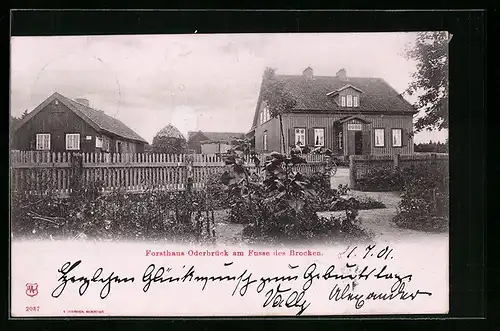 Forsthaus Oderbrück am Fusse des Brocken.
11. 7. 01.
Herzlichen Glückwunsch zum Geburtstag
Vally, Alexander
2037